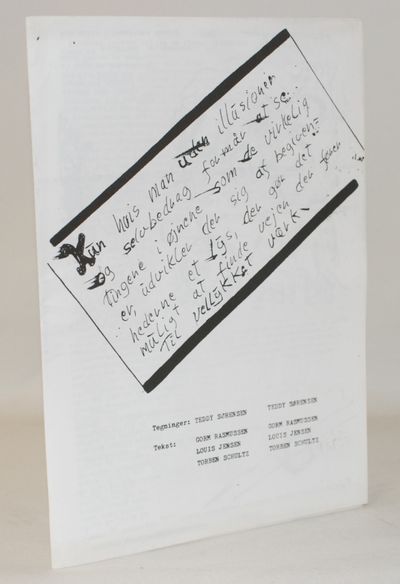 Kun hvis man uden illusioner
og selvbedrag formår at se
tingene i øjnene som de virkelig
er, udvikler der sig af begiven=
hederne et lys, der gør det
muligt at finde vejen der fører
Til vellykket værk.
Tegninger: TEDDY SØRENSEN TEDDY SØRENSEN
Tekst: GORM RASMUSSEN GORM RASMUSSEN
LOUIS JENSEN LOUIS JENSEN
TORBEN SCHULTZ TORBEN SCHULTZ